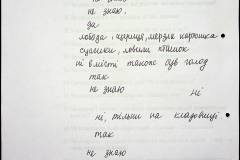 не знаю
не знаю,
да
лобода і кропиця, мерзла картошка
сусліки, ловили пташок
ні в місті такоже був голод
так
не знаю
ні
ні, тільки на кладовищі.
так
не знаю